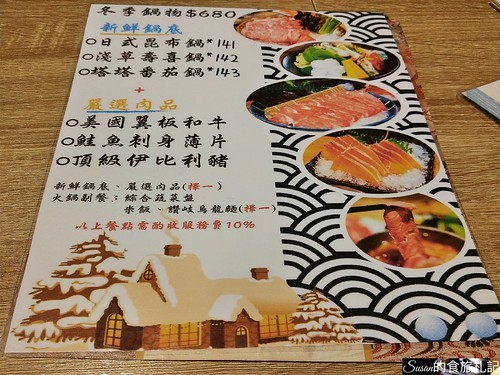 冬季鍋物$680
新鮮鍋底
○日式昆布鍋*141
○淺草壽喜鍋*142
○塔塔番茄鍋*143
+
嚴選肉品
○美國翼板和牛
○鮭魚刺身薄片
○頂級伊比利豬
新鮮鍋底、嚴選肉品(擇一)
火鍋副餐:綜合蔬菜盤
米飯、讚岐烏龍麵(擇一)
以上餐點需酌收服務費10%
Susan的食旅札記